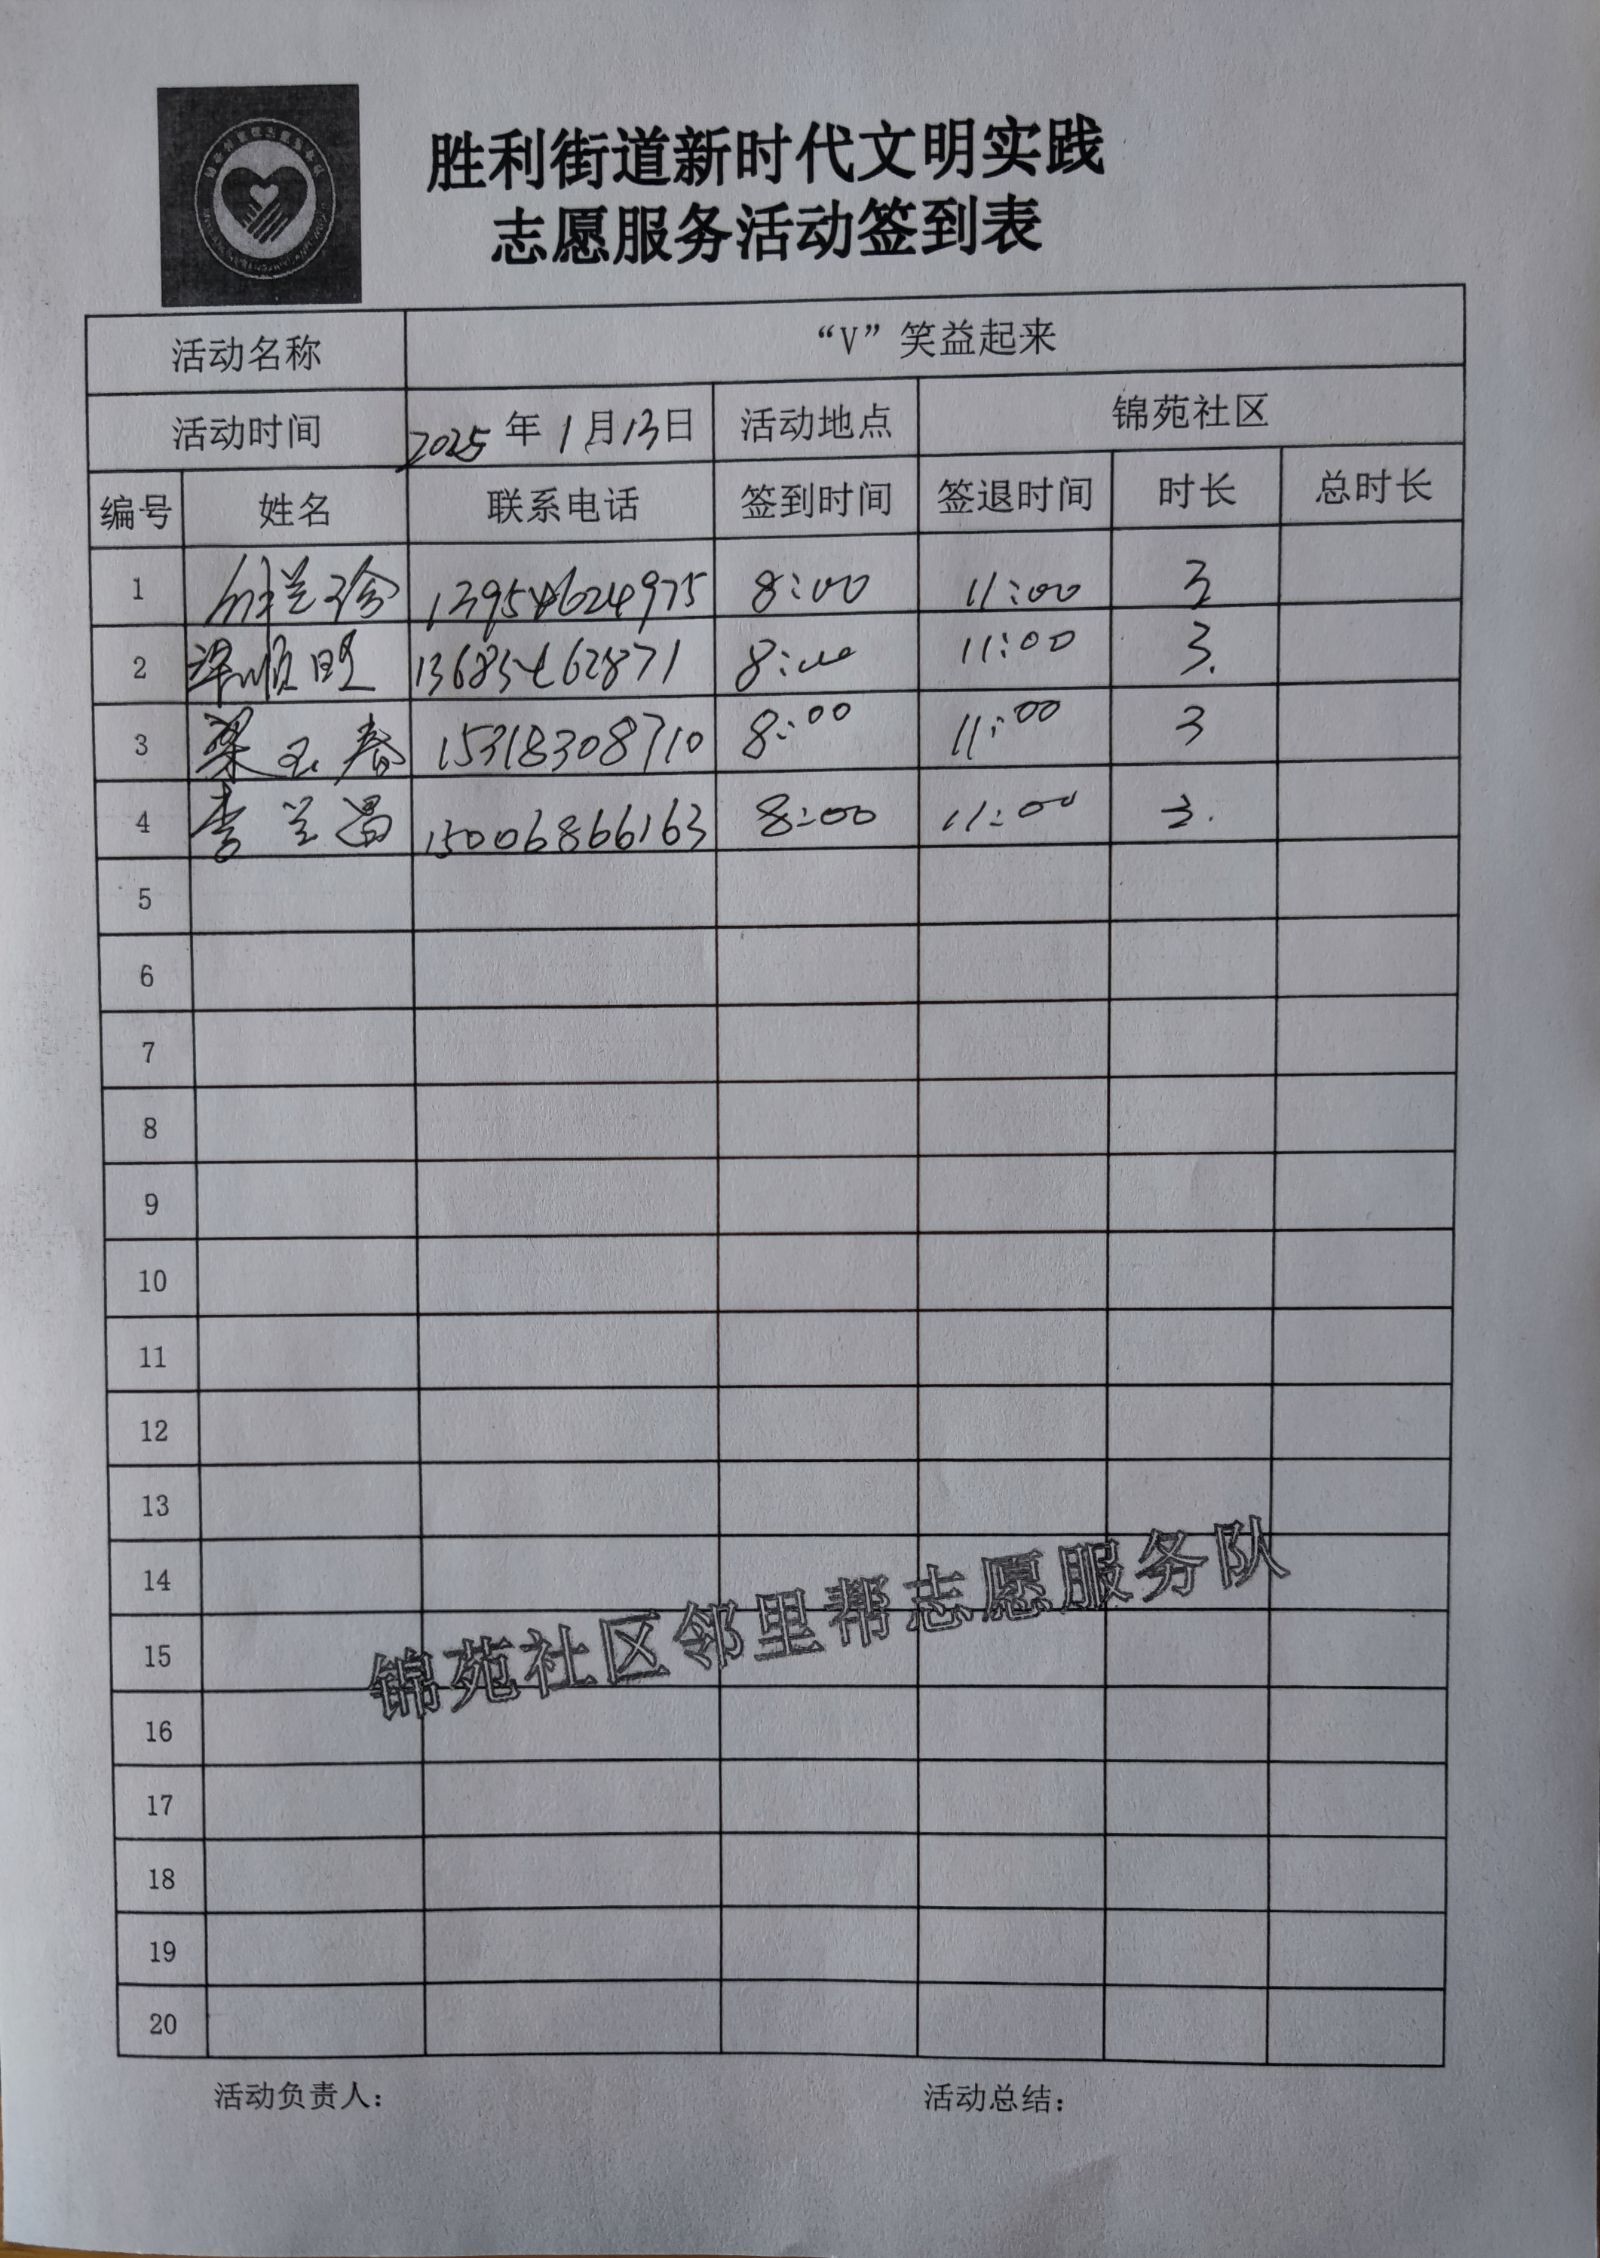 胜利街道新时代文明实践
志愿服务活动签到表
活动名称 “V”笑益起来
活动时间 2025年1月13日 活动地点 锦苑社区
编号 姓名 联系电话 签到时间 签退时间 时长 总时长
1 兰珍 13954624975 8:00 11:00 3
2 顺 13685462871 8:00 11:00 3.
3 梁玉春 15318308710 8:00 11:00 3
4 李兰昌 15006866163 8:00 11:00 3.
5
6
7
8
9
10
11
12
13
14
15
16
17
18
19
20
锦苑社区邻里帮志愿服务队
活动负责人： 活动总结：